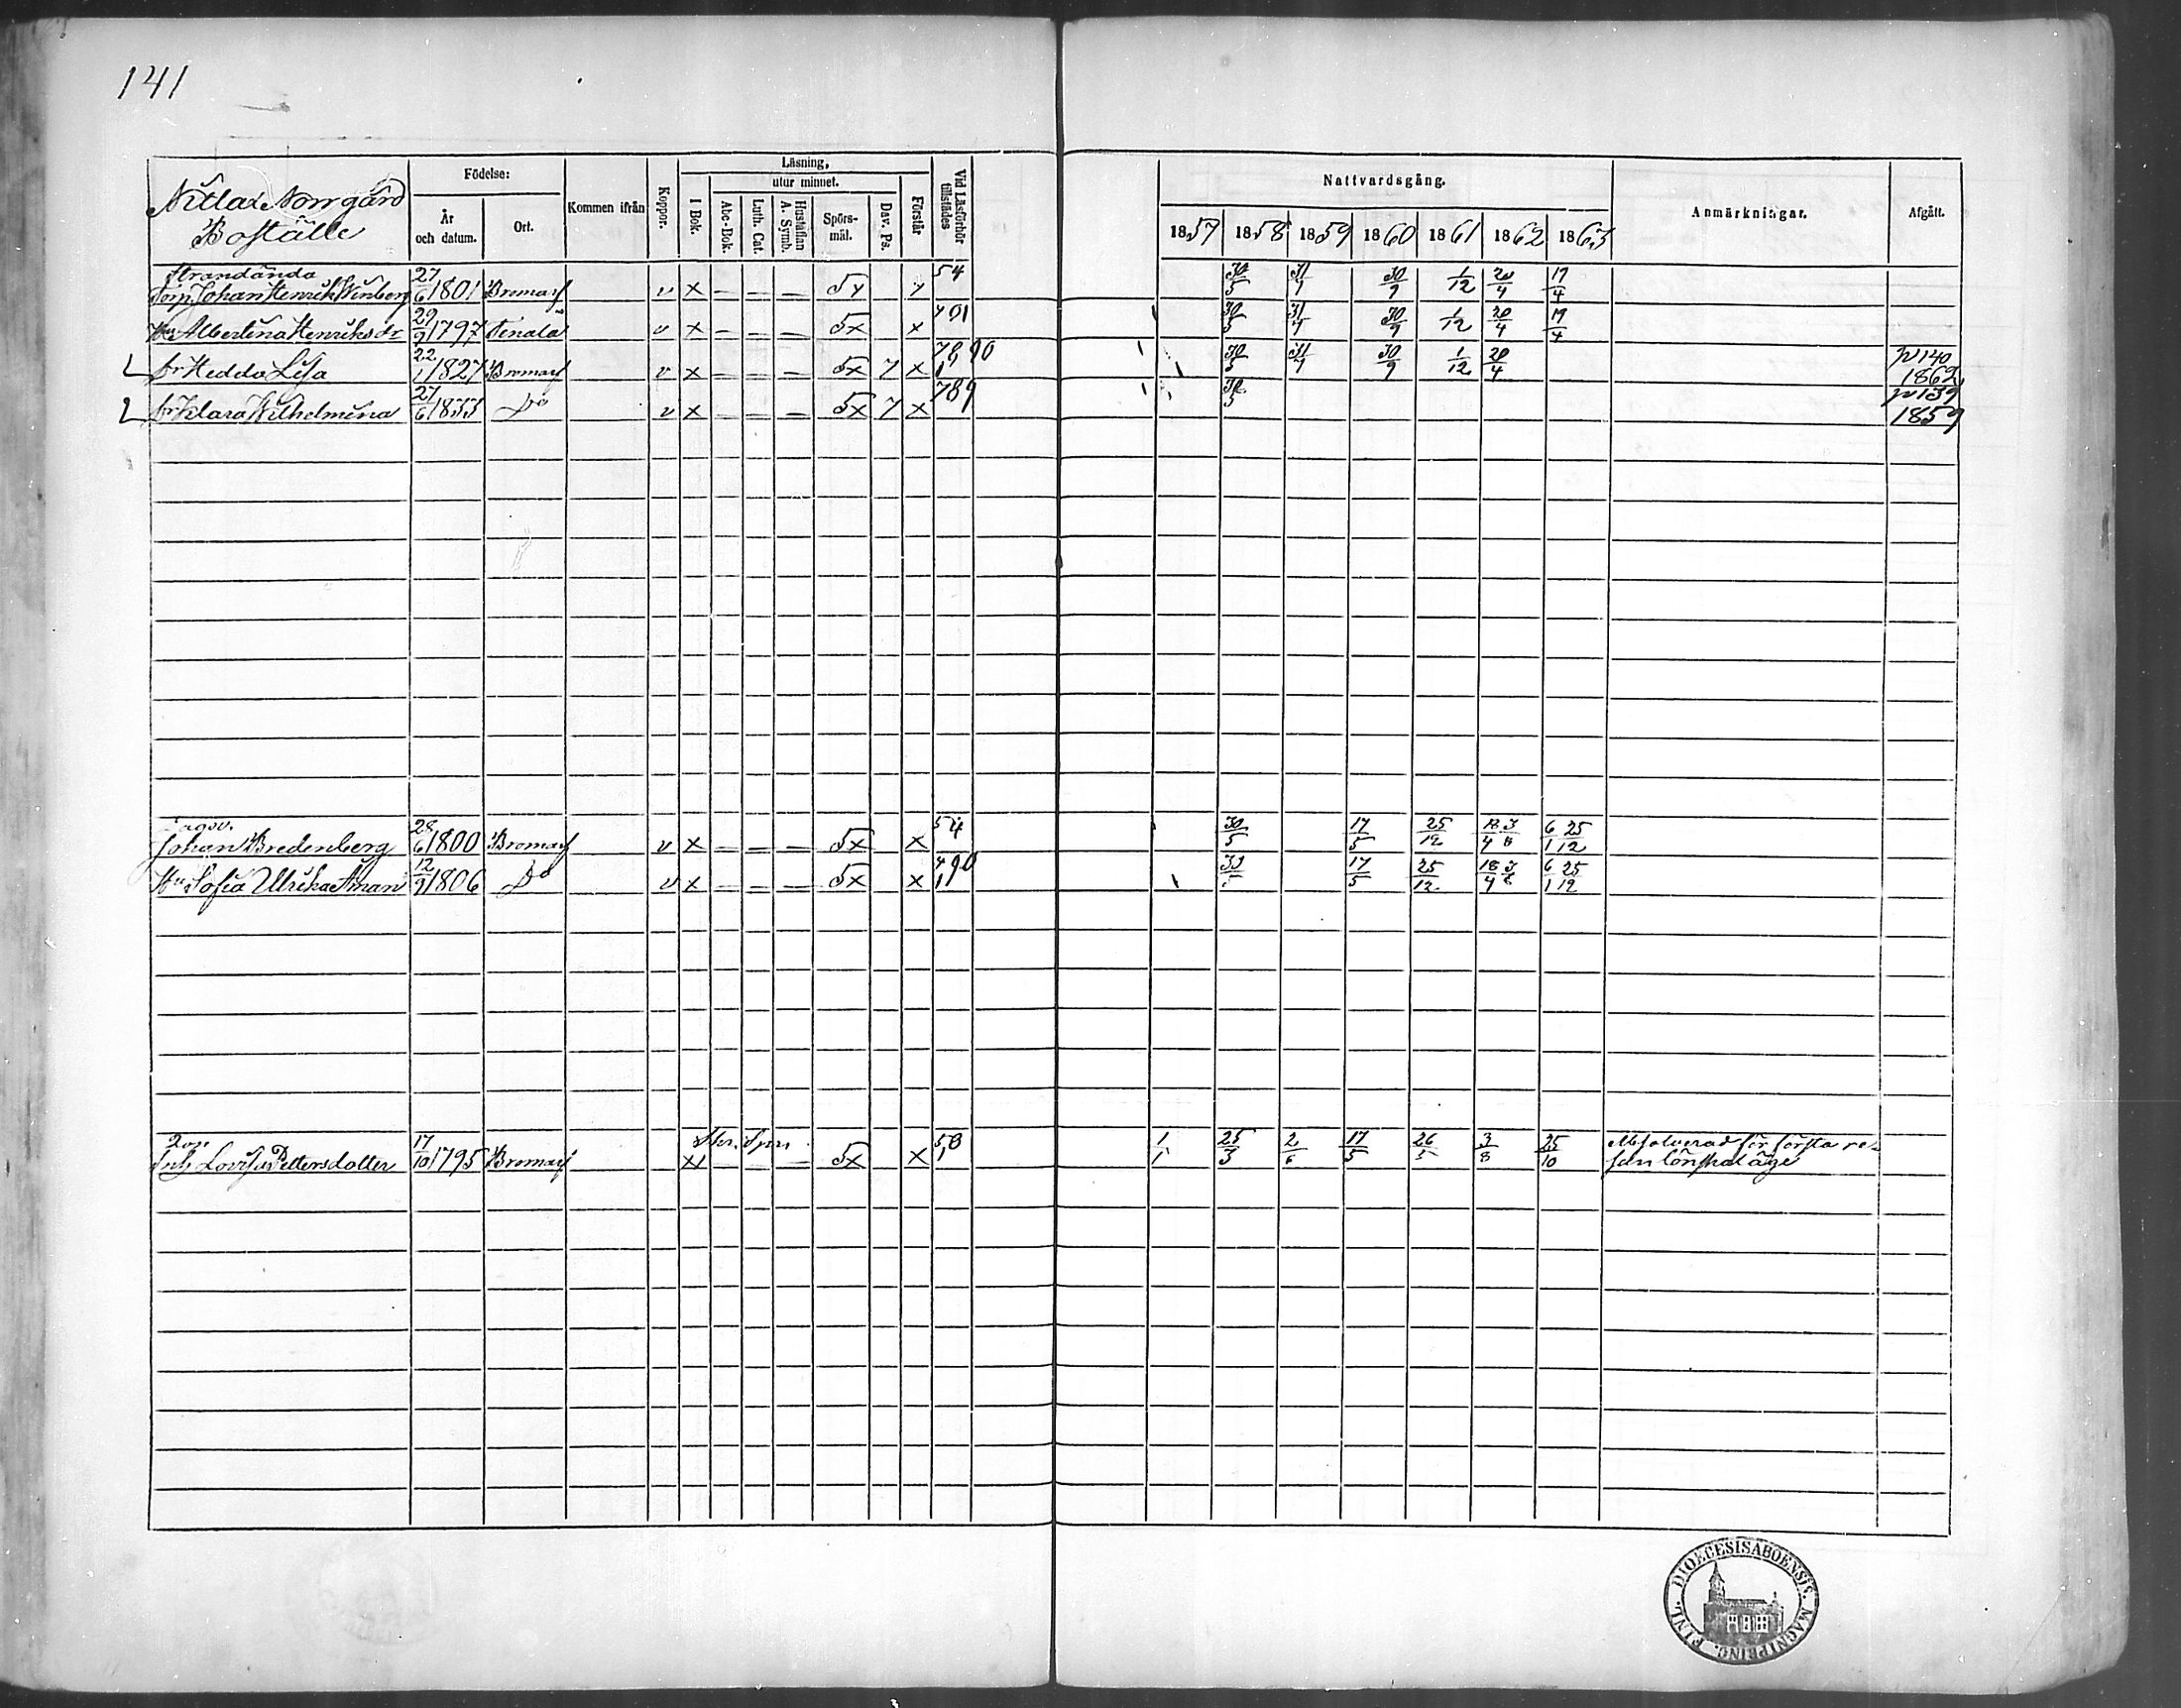 141
Nitlax Norrgård
Boställe
Födelse:
År
och datum.
Ort.
Kommen ifrån
Koppor.
Läsning,
utur minnet.
I Bok.
Abc-Bok.
Luth. Cat.
Hustaflan
A. Symb.
Spörs-
mål.
Dav. Ps.
Förstår
Vid Läsförhör
tillstädes
Nattvardsgång.
1857 1858 1859 1860 1861 1862 1863
Anmärkningar.
Afgått.
Strandända
Torp. Johan Henrik Winberg 27/6 1801 Bromarf v x — — — 5x x 54 30/5 31/7 30/9 1/12 20/4 19/4
Hu Albertina Henriksdr 29/9 1797 Tenala v x — — — 5x x 30/5 31/7 30/9 1/12 20/4 19/4
dr Hedda Lisa 22/1 1827 Bromarf v x — — — 5x 7 x 7890 30/5 31/7 30/9 1/12 20/4 p 140
1862
dr Klara Wilhelmina 27/6 1833 Do v x — — — 5x 7 x 789 30/5 p 139
1859
Johan Bredenberg 28/6 1800 Bromarf v x — — — 5x x 54 30/5 17/5 25/12 18/4 3/8 6/1 25/12
Hu Sofia Ulrika Åman 12/9 1806 Do v x — — — 5x x 490 17/5 25/12 18/4 3/8 6/1 25/12
Inh. Lovisa Pettersdotter 17/10 1795 Bromarf — — — 5x x 58 1/1 25/3 2/6 17/5 26/5 3/8 25/10 Absolverad för första re-
san lönskaläge
DIOECESIS ABOENSIS MAGNI PRINC. FINL.